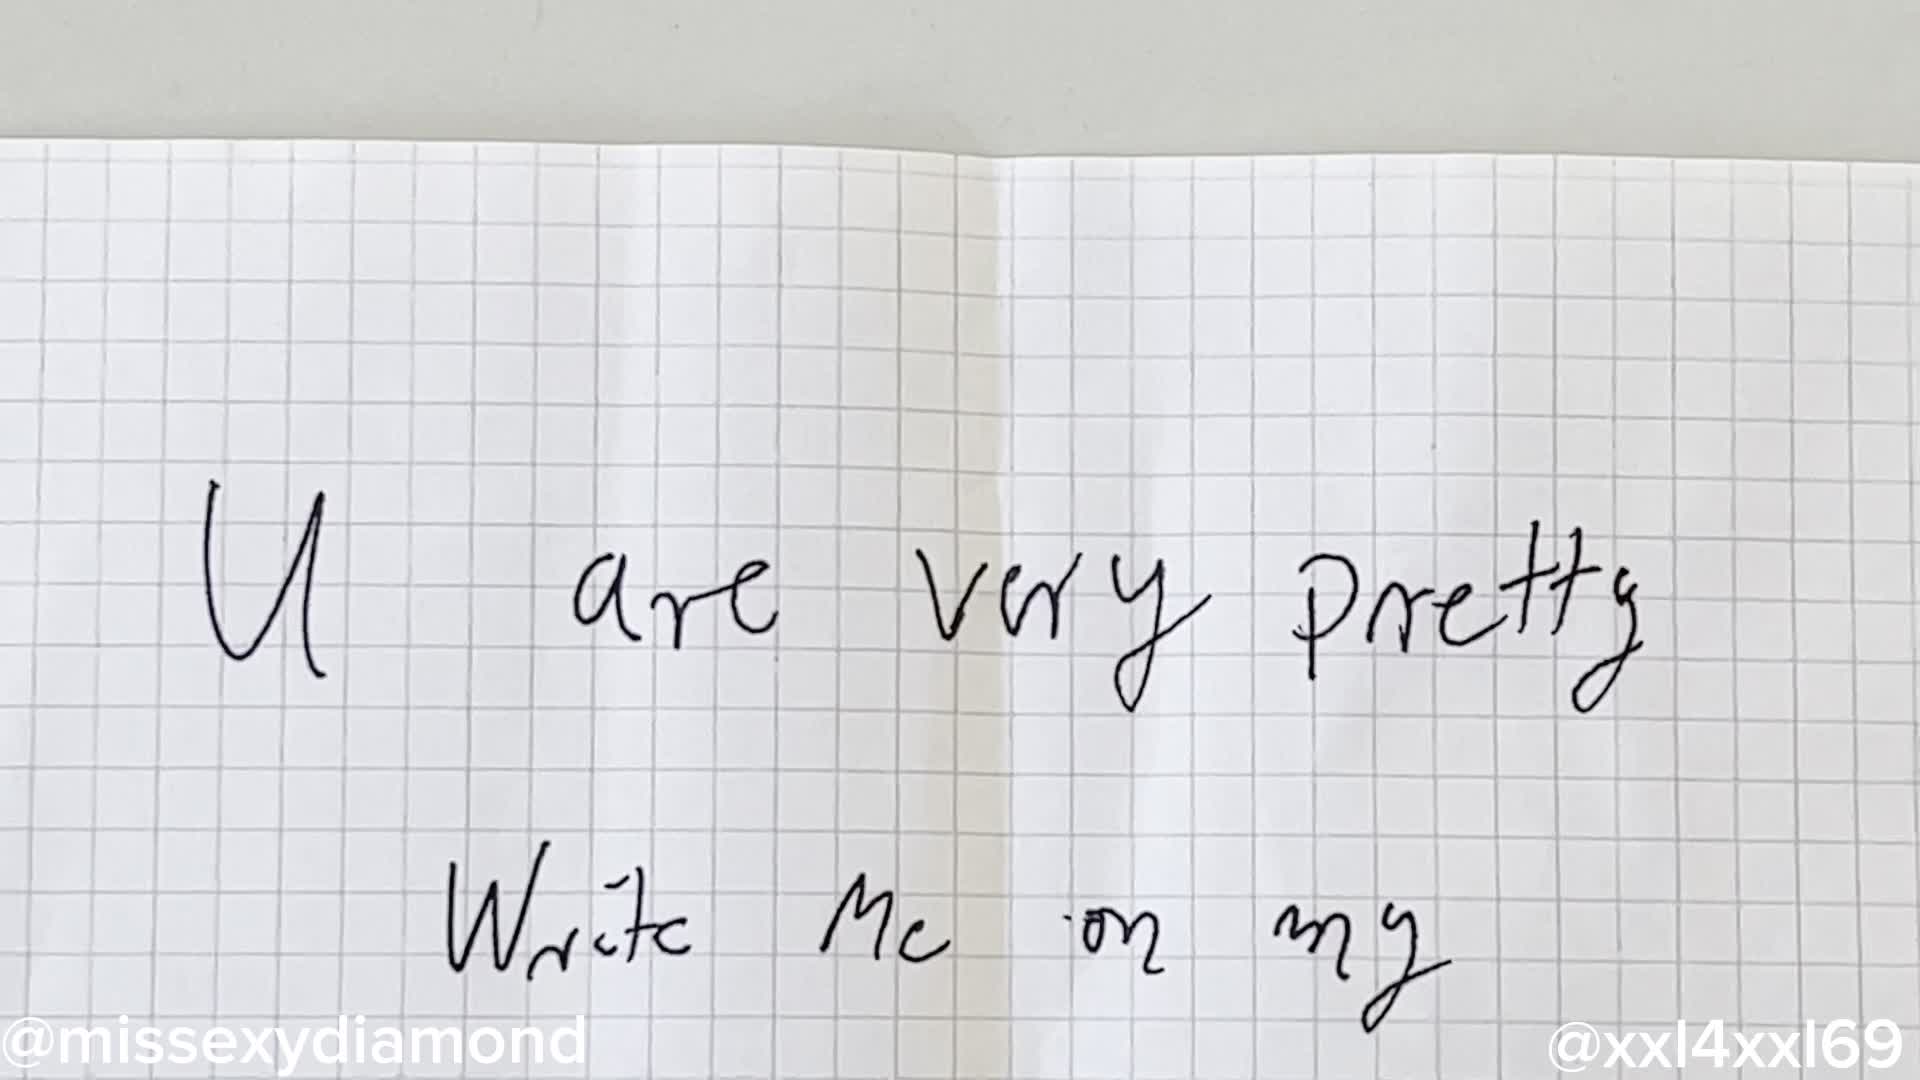 U are very pretty
Write Me on my
@missexydiamond
@xxl4xxl69